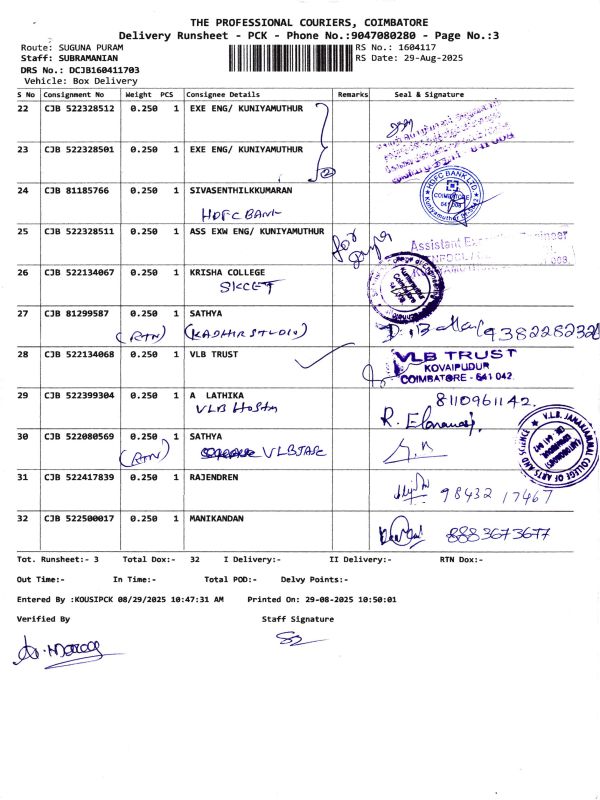 THE PROFESSIONAL COURIERS, COIMBATORE
Delivery Runsheet - PCK - Phone No.:9047080280 - Page No.:3
Route: SUGUNA PURAM RS No.: 1604117
Staff: SUBRAMANIAN RS Date: 29-Aug-2025
DRS No.: DCJB160411703
Vehicle: Box Delivery
S No Consignment No Weight PCS Consignee Details Remarks Seal & Signature
22 CJB 522328512 0.250 1 EXE ENG/ KUNIYAMUTHUR
23 CJB 522328501 0.250 1 EXE ENG/ KUNIYAMUTHUR
2
24 CJB 81185766 0.250 1 SIVASENTHILKKUMARAN
HDFC BANK
HDFC BANK LTD
COIMBATORE
641 008
25 CJB 522328511 0.250 1 ASS EXW ENG/ KUNIYAMUTHUR
for
Assistant
26 CJB 522134067 0.250 1 KRISHA COLLEGE
SKCET
27 CJB 81299587 0.250 1 SATHYA
(RTN) (KADHIR STUDIO) 9382282320
28 CJB 522134068 0.250 1 VLB TRUST
VLB TRUST
KOVAIPUDUR
COIMBATORE - 641 042.
29 CJB 522399304 0.250 1 A LATHIKA 8110961142.
VLB
30 CJB 522080569 0.250 1 SATHYA
(RTN) VLBJASC
V.L.B. JANAKIAMMAL COLLEGE OF ARTS AND SCIENCE
31 CJB 522417839 0.250 1 RAJENDREN
98432 17467
32 CJB 522500017 0.250 1 MANIKANDAN 8883673677
Tot. Runsheet:- 3 Total Dox:- 32 I Delivery:- II Delivery:- RTN Dox:-
Out Time:- In Time:- Total POD:- Delvy Points:-
Entered By :KOUSIPCK 08/29/2025 10:47:31 AM Printed On: 29-08-2025 10:50:01
Verified By Staff Signature